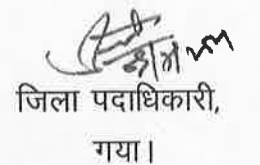 जिला पदाधिकारी,
गया।